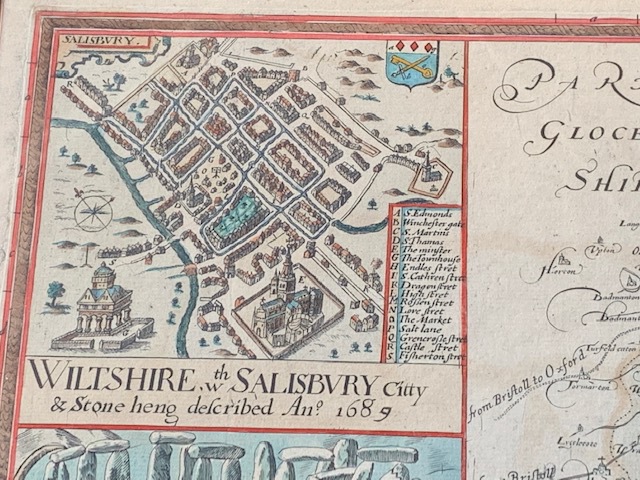 SALISBURY.
A S. Edmonds
B Winchester gate
C S. Martins
D S. Thomas
E The minster
G The Townhouse
H Endles stret
I S. Cathren stret
K Dragon stret
L High stret
M
N Love stret
O The Market
P Salt lane
Q Grencrosse stret
R Castle stret
S Fisherton stret
WILTSHIRE. wth SALISBURY Citty
& Stone heng described Ano. 1689
PAR
GLOCE
SHI
Long
Upton
Horton
Badmanton
Badmanto
Tormarton
from Bristoll to Oxford
from Bristoll